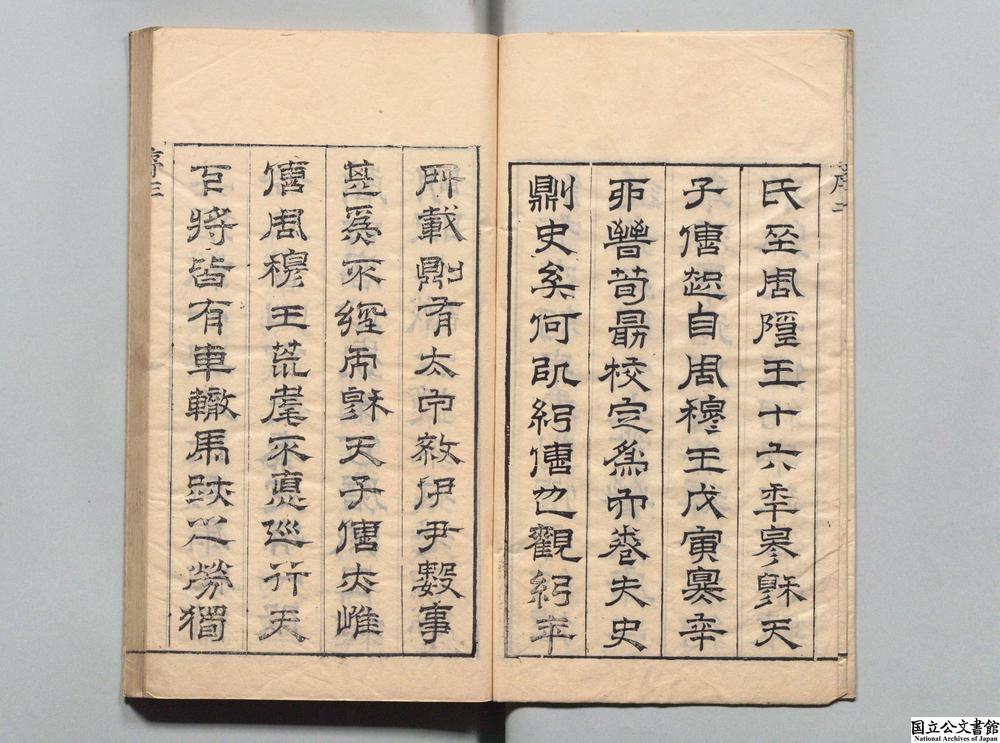 序二
氏至周隱王十六年穆天
子傳起自周穆王戊寅辛
卯晉荀勗校定為卷夫史
則史矣何以紀傳也觀紀年
所載則有太甲殺伊尹數事
甚為不經而穆天子傳亦唯
傳周穆王荒耄不悳巡行天
下將皆有車轍馬跡之勞獨
序三
国立公文書館
National Archives of Japan